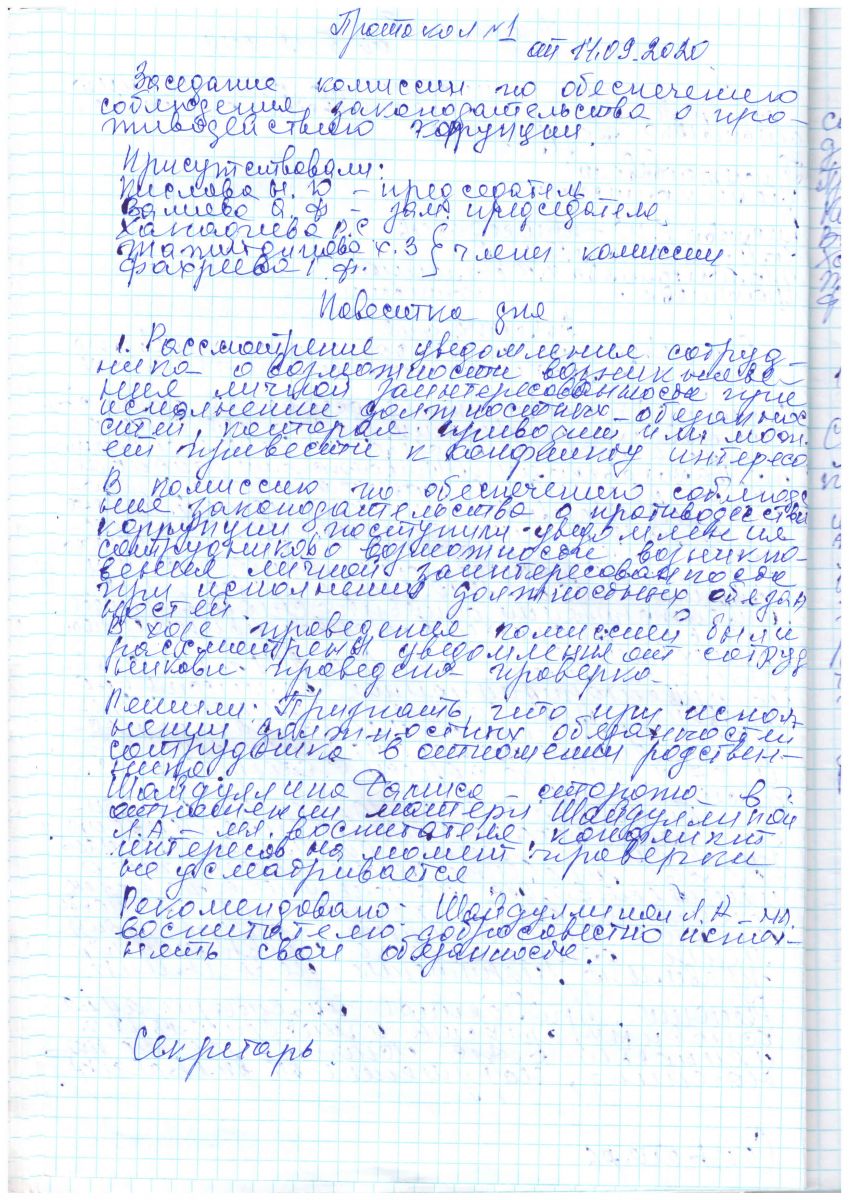 Протокол №1
от 11.09.2020
Заседание комиссии по обеспечению
соблюдения законодательства о про-
тиводействию коррупции.
Присутствовали:
Н. Ю – председатель
Валиева Ф. – зам. председателя
Р. С
Х. З { члены комиссии
Фахреева Г. Ф.
Повестка дня
1. Рассмотрение уведомления сотруд-
ника о возможности возникнове-
ния личной заинтересованности при
исполнении должностных обязанно
стей, которая приводит или мож
ет привести к конфликту интересо
В комиссию по обеспечению соблюде
ния законодательства о противодействи
коррупции поступили уведомления
сотрудников о возможности возникно-
вения личной заинтересованности
при исполнении должностных обязан
ностей
В ходе проведения комиссией были
рассмотрены уведомления от сотруд
ников и проведена проверка.
Решили: Признать, что при испол-
нении должностных обязанностей
сотрудника в отношении родствен-
ника
Шайдуллина – сторожа в
отношении матери Шайдуллиной
Л.А – мл. воспитателя, конфликт
интересов на момент проверки
не усматривается
Рекомендовано: Шайдуллиной Л.А – мл.
воспитателю добросовестно испол-
нять свои обязанности.
Секретарь